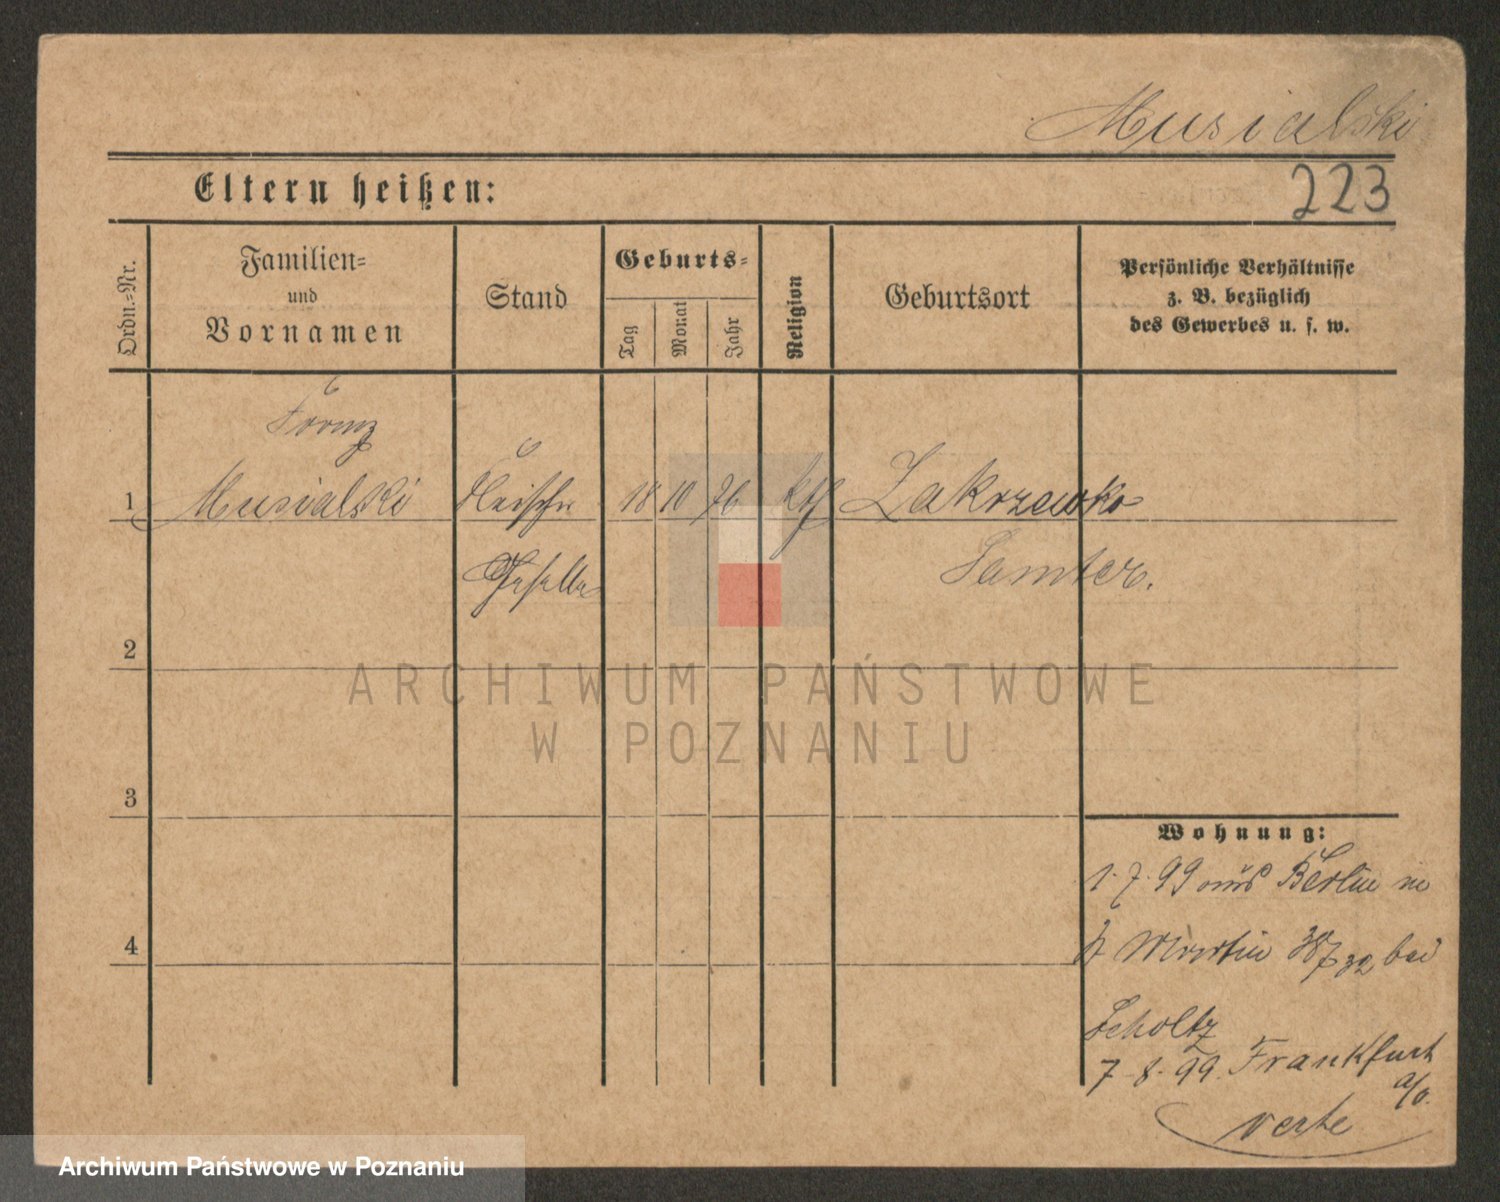 Musialski
Eltern heißen:
223
Ordn.=Nr.
Familien=
und
Vornamen
Stand
Geburts=
Tag
Monat
Jahr
Religion
Geburtsort
Persönliche Verhältnisse
z. B. bezüglich
des Gewerbes u. s. w.
Franz
1 Musialski Fleischer 18 10 76 kth Zakrzewko
Geselle Samter.
2
3
4
Wohnung:
1.7.99 aus Berlin
Martin bei
Scholtz
7.8.99. Frankfurt
a/o.
verte
ARCHIWUM PAŃSTWOWE
W POZNANIU
Archiwum Państwowe w Poznaniu